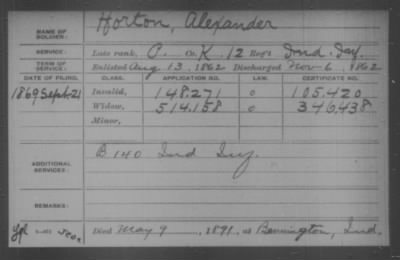 NAME OF SOLDIER: Horton, Alexander
SERVICE: Late rank, P. Co. K, 12 Reg't Ind. Inf.
TERM OF SERVICE: Enlisted Aug 13, 1862 Discharged Nov 6, 1862
DATE OF FILING. CLASS. APPLICATION NO. LAW. CERTIFICATE NO.
1869 Sept. 21 Invalid, 148.271 o 105.420
Widow, 514.158 o 346.438
Minor,
ADDITIONAL SERVICES: B 140 Ind Inf.
REMARKS:
Died May 9, 1891, at Bennington, Ind.